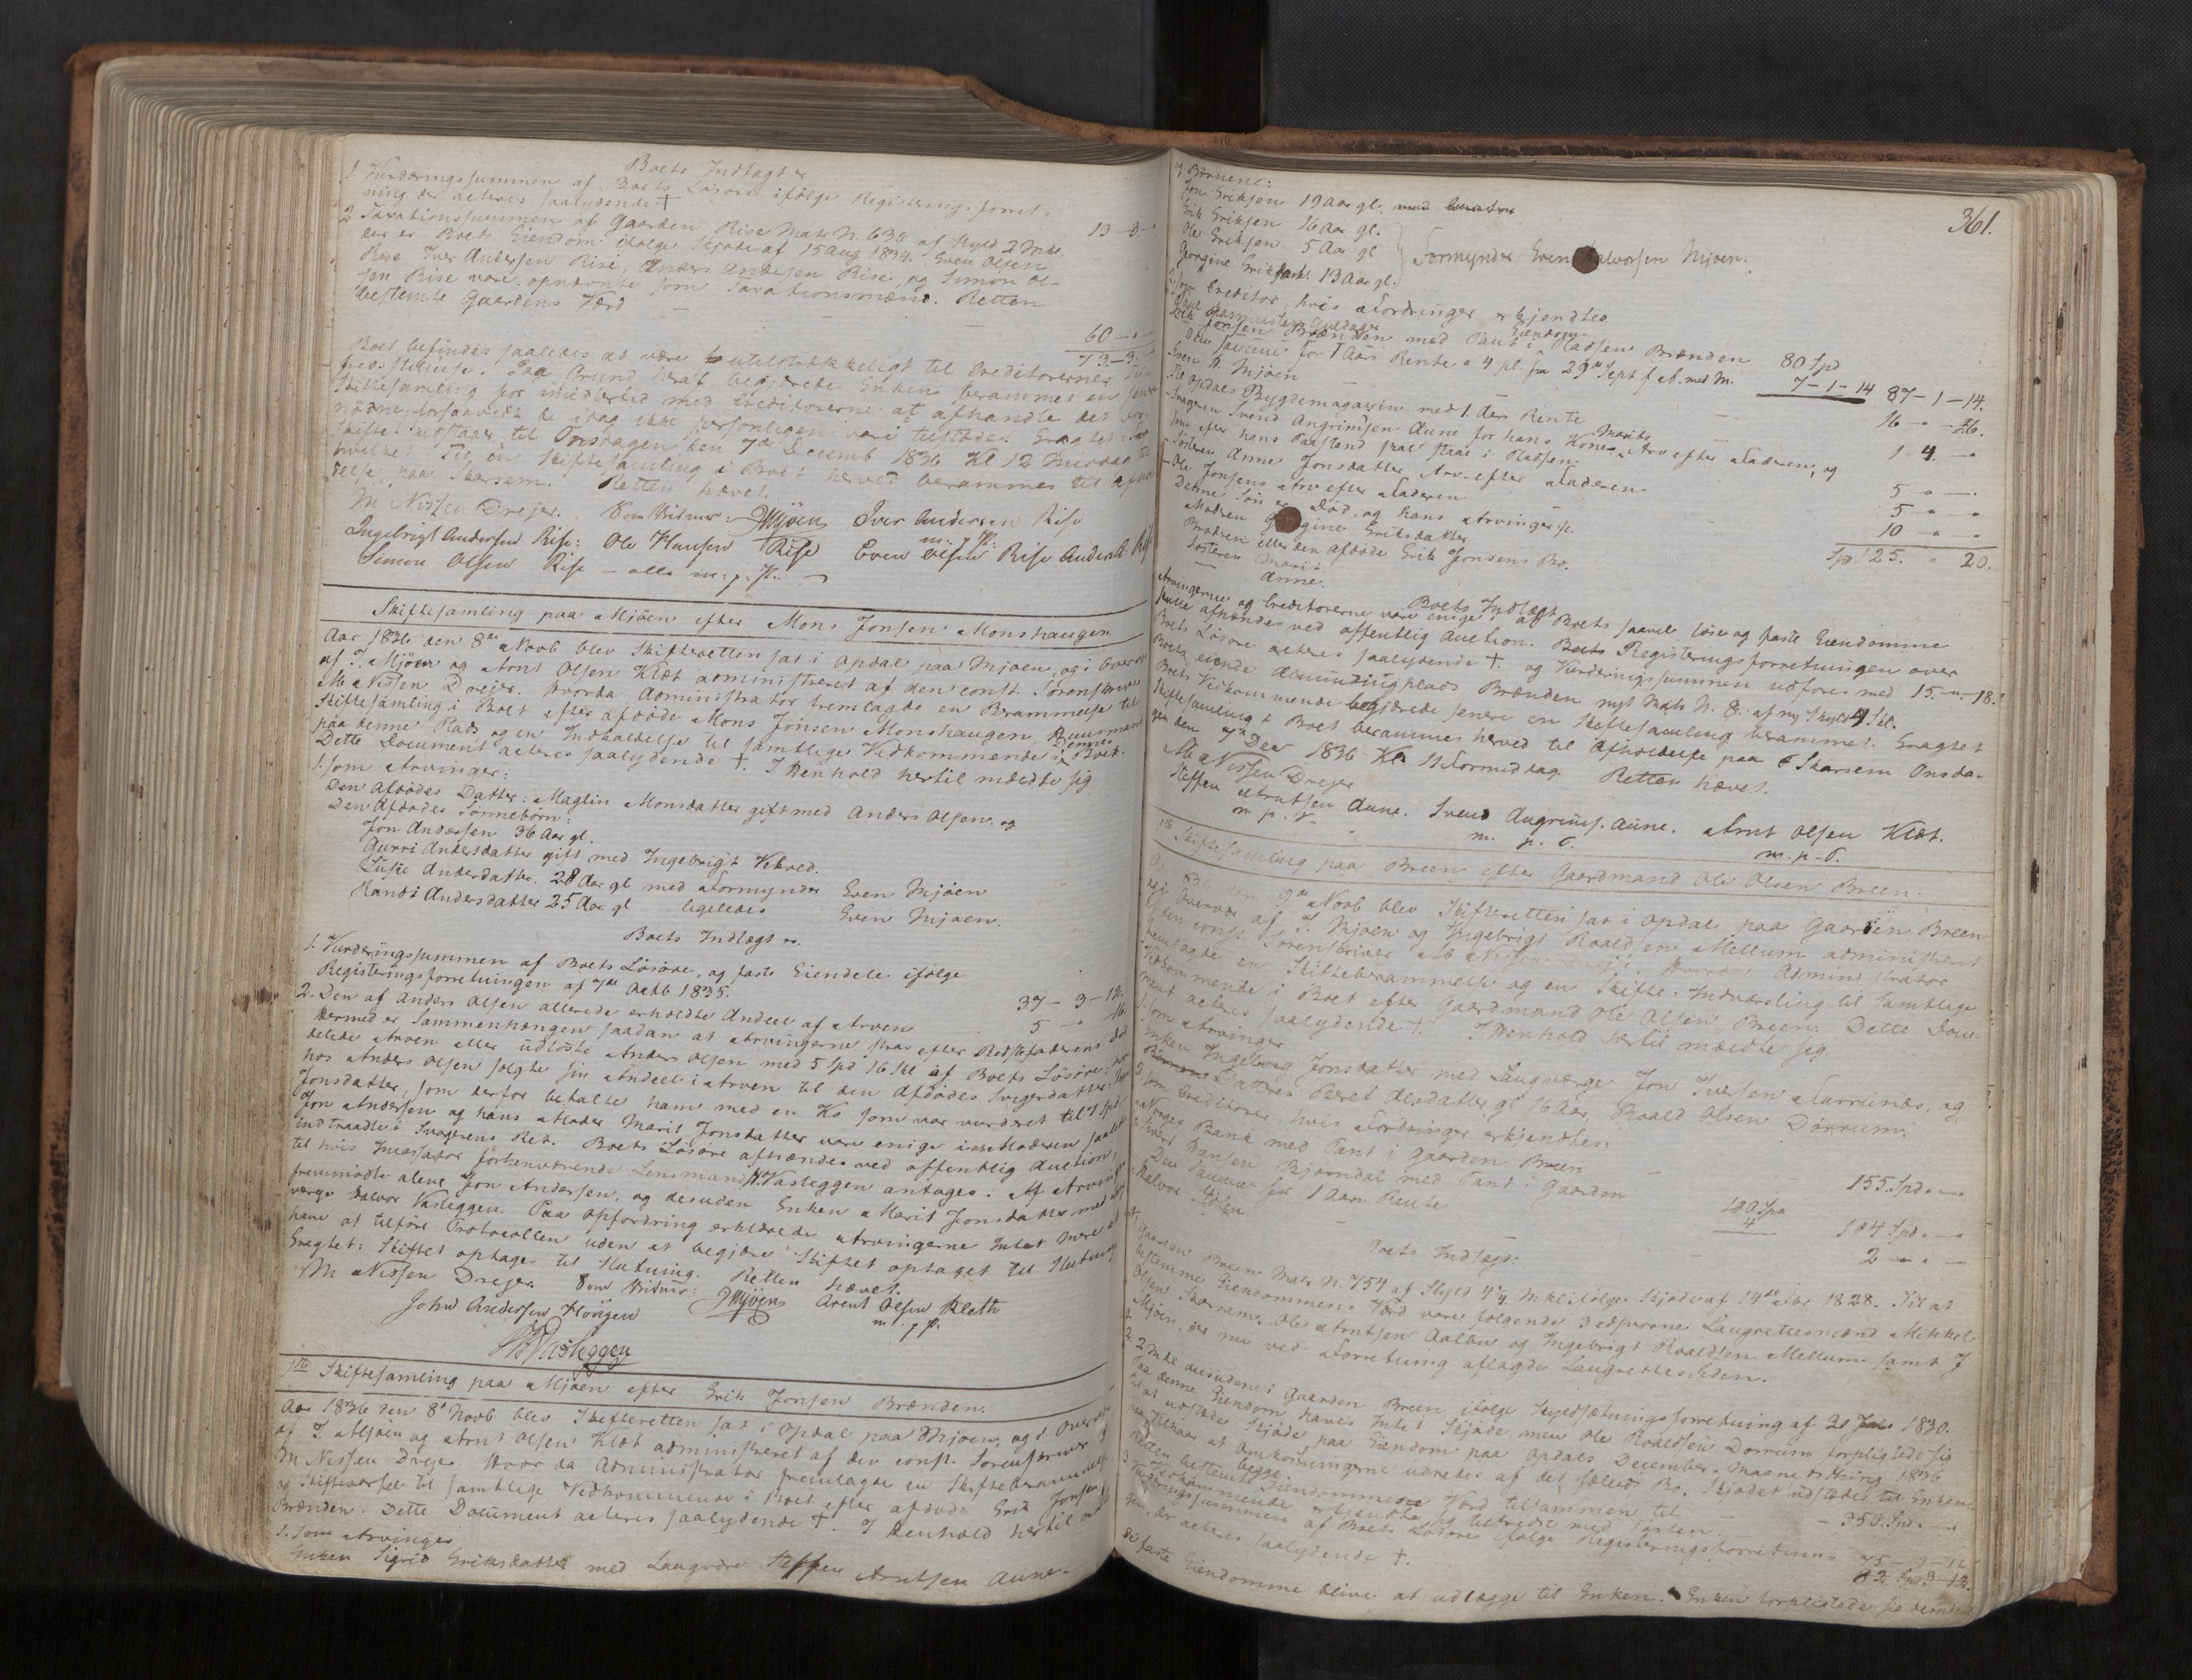 Boets Indtægt er
1. Vurderingssummen af Boets Løsøre ifølge Registeringsforret-
ning der acteres saalydende † 13-3-
2 Taxationssummen af Gaarden Rise Matr N. 636 af Skyld 2 Mkl
der er Boets Eiendom ifølge Skjøde af 15 Aug 1834. Even Olsen
Rise Iver Andersen Rise, Anders Andersen Rise, og Simon Ol-
sen Rise vare opnævnte som Taxationsmænd. Retten
bestemte Gaardens Værd 60-"-
73-3-
Boet befindes saaledes at være utilstrækkeligt til Creditorernes
fredsstillelse. Paa Grund heraf begjærede Enken berammet en
Skiftesamling for imidlertid med Creditorerne at afhandle det
nødne, forsaavidt de idag ikke personligen vare tilstede. Eragtet:
Skiftet udstaaer til Onsdagen den 7de Decemb 1836 Kl 12 Middag
hvilket Tid en Skiftesamling i Boet herved berammes til
delse paa Skarsem. Retten hævet.
M Nissen Drejer. Som Vidner: JMjöen Iver Andersen Rise
Ingebrigt Andersen Rise: Ole Hansen Rise Even Olsen Rise Anders A. Rise
Simon Olsen Rise - alle m. p. P.
Skiftesamling paa Mjöen efter Mons Jonsen Monshaugen
Aar 1836 den 8de Novb blev Skifteretten sat i Opdal paa Mjoen, og i Overvær
af J. Mjöen og Arnt Olsen Klæt administreret af den const. Sorenskriver
M Nissen Drejer. Hvorda Administrator fremlagde en Berammelse til
Skiftesamling i Boet efter afdøde Mons Jonsen Monshaugen, Huusmand
paa denne Plads og en Indkaldelse til samtlige Vedkommende i Dennes Boet.
Dette Document acteres saalydende †. I Henhold hertil mældte sig
1. som Arvinger:
Den Afdødes Datter: Maglin Monsdatter gift med Anders Olsen. og
Den Afdødes Sønnebørn:
Jon Andersen 36 Aar gl.
Gurri Andersdatter gift med Ingebrigt Vekved.
Lusie Andersdatter. 28 Aar gl med Formynder Even Mjöen
Randi Andersdatter 25 Aar gl ligeledes Even Mjoen.
Boets Indtægt er.
1. Vurderingssummen af Boets Løsøre, og faste Eiendele ifølge
Registeringsforretningen af 7de Octb 1835. 37-3-12.
2. Den af Anders Olsen allerede erholdte Andeel af Arven 5 -"- 16.
Hermed er Sammenhængen saadan at Arvingerne strax efter Bedstefaderens Død
delede Arven eller udløste Anders Olsen med 5 Spd 16 Skl af Boets Løsøre;
hos Anders Olsen solgte sin Andeel i Arven til den Afdødes Svigerdatter Marit
Jonsdatter, som derfor betalte ham med en Ko som var vurderet til 7 Spd.
Jon Andersen og hans Moder Marit Jonsdatter vare enige i at Moderen saaledes
indtraadte i Svogerens Ret. Boets Løsøre afhændes ved offentlig Auction,
til hvis Incassator forhenværende Lensmand H. Vasleggen antoges. Af Arvingerne
fremmødte alene Jon Andersen, og desuden Enken Marit Jonsdatter med
værge Halvor Vasleggen. Paa Opfordring erklærede Arvingerne Intet mere at
have at tilføre Protocollen uden at begjære Skiftet optaget til Slutning
Eragtet: Skiftet optages til Slutning. Retten hævet.
M Nissen Drejer. Som Vidner: JMjöen Arent Olsen Kleth
John Andersen Hougen m. p. P.
HVasleggen
1ste Skiftesamling paa Mjöen efter Erik Jonsen Brænden.
Aar 1836 den 8de Novb blev Skifteretten sat i Opdal paa Mjoen, og i Overvær
af J. Mjöen og Arnt Olsen Klæt administreret af den const. Sorenskriver
M Nissen Drejer. Hvor da Administrator fremlagde en Skifteberammelse
og Skiftevarsel til samtlige Vedkommende i Boet efter afdøde Erik Jonsen
Brænden. Dette Document acteres saalydende †. I Henhold hertil
1. som Arvinger
Enken Sigrid Eriksdatter med Laugværge Steffen Arntsen Aune.
361.
Børnene:
Jon Eriksen 19 Aar gl.
Erik Eriksen 16 Aar gl.
Ole Eriksen 5 Aar gl
Georgine Eriksdatt. 13 Aar gl.
Formynder Even Halvorsen Mjoen.
2. som Creditor, hvis Fordringer erkjendtes
Erik Jonsen Brænden med Pant i Eiendom Pladsen Brænden 80 Spd
Den samme for 1 Aars Rente a 4 pC. fra 29de Sept f. a. med M. 7-1-14 87-1-14.
Even H. Mjöen 16 - " - 26.
Til Opdals Bygdemagazin med 1 Aars Rente 1 4. - "
Svogeren Svend Angrimsen Aune for hans Kones Marits Arv efter Faderen, og
som efter hans Paastand skal staae i Pladsen 5 " -
Søsteren Anne Jonsdatter Arv efter Faderen 5 " "
Ole Jonsens Arv efter Faderen 10 - " -
Denne Søn er Død, og hans Arvinger er. Sp 125. " 20.
Modren Georgine Eriksdatter
Brodren eller den Afdøde Erik Jonsens Bo.
Søsteren Marit.
Anne.
Boets Indtægt
Arvingerne og Creditorerne vare enige i at Boets saavel løse og faste Eiendomme
skulle afhændes ved offentlig Auction. Boets Registeringsforretningen over
Boets Løsøre acteres saalydende †. og Vurderingssummen udføres med 15.-"-18.
Boets eiende Rødningsplads Brænden nyt Matr N. 8. af ny Skyld 4 Skl.
Boets Vedkommende begjærede senere en Skiftesamling berammet. Eragtet
Skiftesamling i Boet berammes herved til Afholdelse paa Skarsem Onsda-
gen den 7de Decr 1836 Kl. 11 Formiddag. Retten hævet.
M Nissen Drejer
Steffen Arntsen Aune. Svend Angrims. Aune. Arnt Olsen Klæt.
m. p. P. m. p. P. m. p. P.
1ste Skiftesamling paa Breen efter Gaardmand Ole Olsen Breen.
9de Novb blev Skifteretten sat i Opdal paa Gaarden Breen
og i Overvær af J. Mjöen og Ingebrigt Roaldsen Mellum administreret
af den const. Sorenskriver M Nissen Drejer. Hvorda Administrator
fremlagde en Skifteberammelse og en Skifte-Indvarsling til samtlige
Vedkommende i Boet efter Gaardmand Ole Olsen Breen. Dette Docu-
ment acteres saalydende †. I Henhold hertil mældte sig.
1. som Arvinger
Enken Ingeborg Jonsdatter med Laugværge Jon Iversen, og
Datteren Beret Olsdatter gl 16 Aar, Roald Olsen Dørrum.
2. som Creditorer, hvis Fordringer erkjendtes:
Norges Bank med Pant i Gaarden Breen 155. Spd. " -
Hansen Bjørndal med Pant i Gaarden 100 Spd
Den samme for 1 Aars Rente 4 104 Spd. -
Halvor Stølen 2 - " -
Boets Indtægt.
1. Gaarden Breen Matr N. 754 af Skyld 4¼ Mkl ifølge Skjøde af 14de Febr 1828. Til at
bestemme Eiendommens Værd vare følgende 3 edsvorne Laugrettesmænd Mikkel
Olsen Skarsem, Ole Arntsen Aalbu og Ingebrigt Roaldsen Mellum samt J
Mjöen, der nu ved Forretning aflagde Laugrettes Eden.
2. 2 Mkl desuden i Gaarden Breen ifølge Skyldsætningsforretning af 30 1830.
Paa denne Eiendom haves Intet Skjøde men Ole Roaldsen Dørrum forpligtede sig
til at udstede Skjøde paa Eiendom paa Opdals December Maaneds Thing 1836
paa Vilkaar at Omkostningerne udredes af det fælleds Bo. Skjødet udstedes til Enken.
Retten bestemte begge Eiendommenes Værd tilsammen til - 350. Spd. -
3. Vurderingssummen af Boets Løsøre ifølge Registeringsforretnin- 75-3-12
gen, der acteres saalydende †.
De faste Eiendomme blive at udlægge til Enken. Enken forpligtede sig desuden